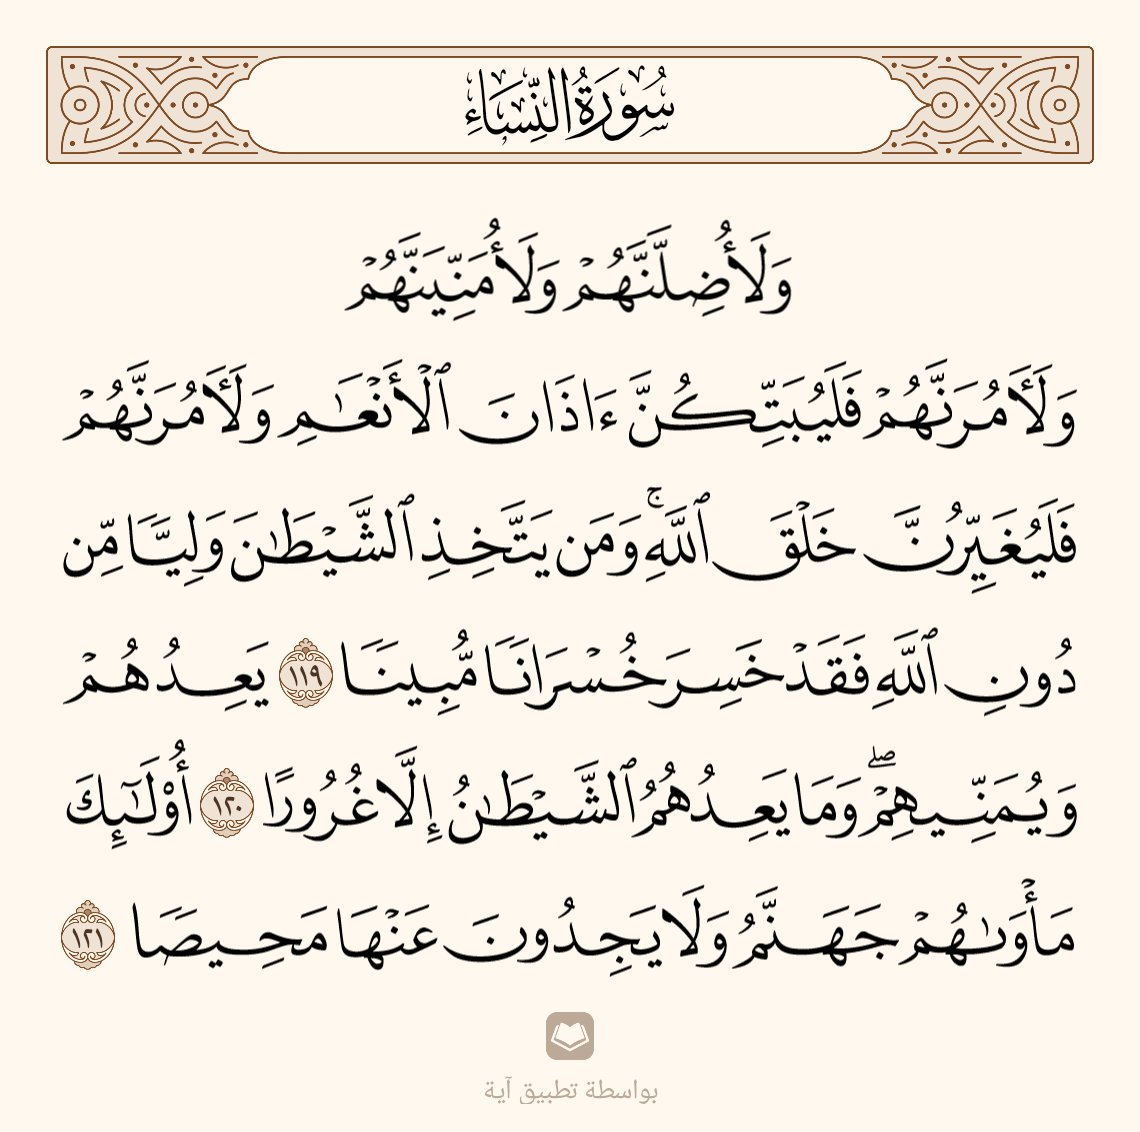 سُورَةُ النِّسَاءِ
وَلَأُضِلَّنَّهُمْ وَلَأُمَنِّيَنَّهُمْ
وَلَـَٔامُرَنَّهُمْ فَلَيُبَتِّكُنَّ ءَاذَانَ ٱلْأَنْعَـٰمِ وَلَـَٔامُرَنَّهُمْ
فَلَيُغَيِّرُنَّ خَلْقَ ٱللَّهِ ۚ وَمَن يَتَّخِذِ ٱلشَّيْطَـٰنَ وَلِيًّا مِّن
دُونِ ٱللَّهِ فَقَدْ خَسِرَ خُسْرَانًا مُّبِينًا ١١٩ يَعِدُهُمْ
وَيُمَنِّيهِمْ ۖ وَمَا يَعِدُهُمُ ٱلشَّيْطَـٰنُ إِلَّا غُرُورًا ١٢٠ أُو۟لَـٰٓئِكَ
مَأْوَىٰهُمْ جَهَنَّمُ وَلَا يَجِدُونَ عَنْهَا مَحِيصًا ١٢١
بواسطة تطبيق آية